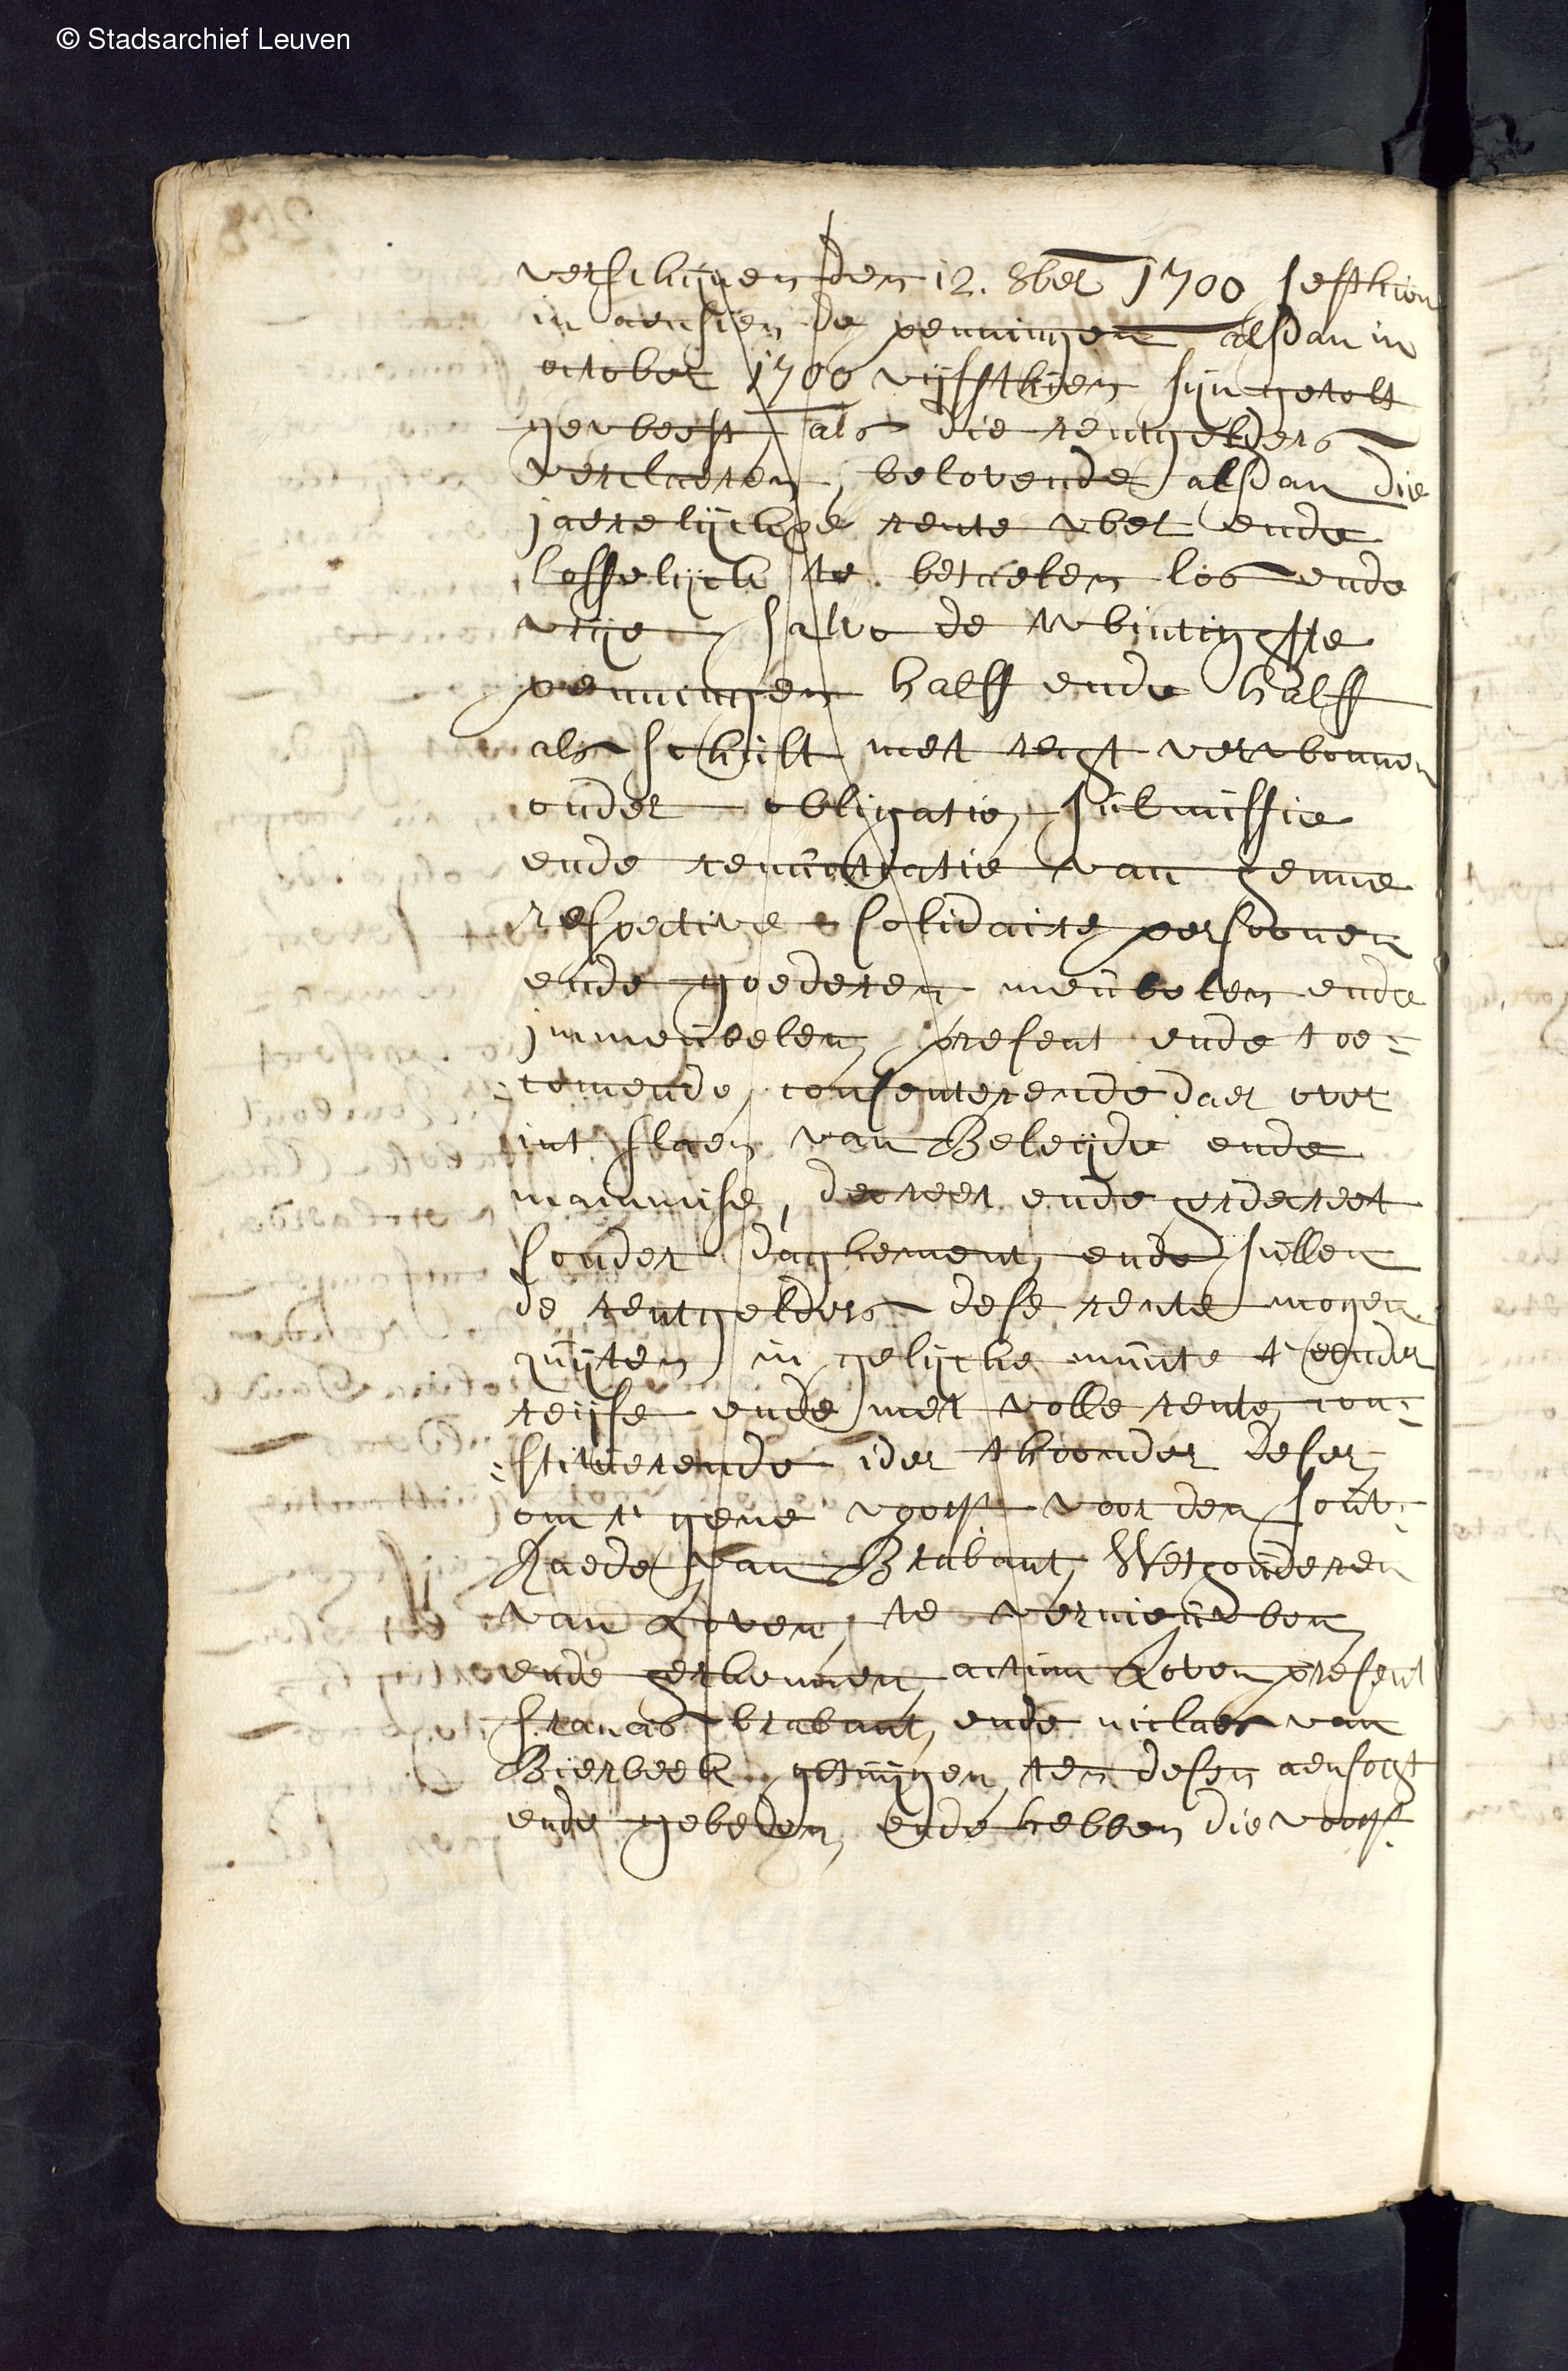 © Stadsarchief Leuven
verschijnen den 12. 8ber 1700 sesthien
in aensien de penningen alsdan in
october 1700 vijffthien sijn getelt
geweest, als die rentgelders
verclaeren, belovende alsdan die
jaerelijckse rente wel ende
loffelijck te betaelen los ende
vrije salvo de twintighste
penningen halff ende halff
als schult met recht verwonnen
onder obligatie, submissie
ende renuntiatie van henne
respective & solidaire persoonen
ende goederen meubelen ende
immeubelen, present ende toe=
=comende, consenterende daer over
int slaen van Beleyde ende
manmise, decreet ende herdecreet
sonder daghement, ende sullen
de rentgelders dese rente mogen
quijten in gelijcke munte t'eender
reijse ende met volle rente, con=
=stituerende ider thoonder deser,
om t' gene voors. voor den souv=
Raede van Brabant, Wethouderen
van Loven, te vernieuwen
ende herkennen, actum Loven present
francis brabant, ende niclaes van
Bierbeek getuijgen, ten desen aensocht
ende gebeden, ende hebben die voors.